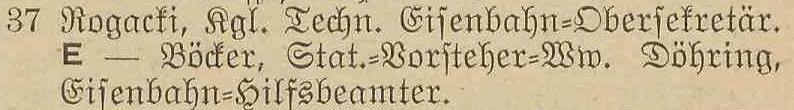 37 Rogacki, Kgl. Techn. Eisenbahn-Obersekretär.
E — Böcker, Stat.-Vorsteher-Ww. Döhring,
Eisenbahn-Hilfsbeamter.